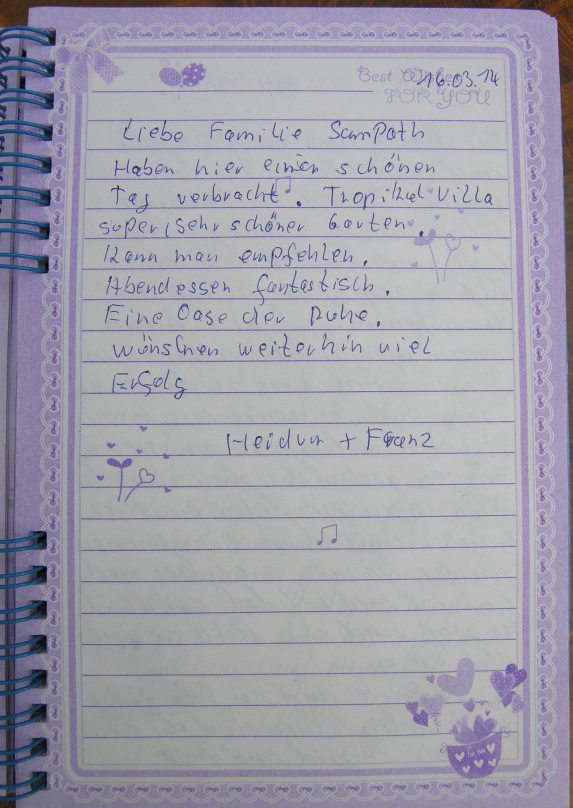 Best Wishes 16.03.14
FOR YOU
Liebe Familie SamPath
Haben hier einen schönen
Tag verbracht. Tropikal Villa
super, sehr schöner Garten.
Kann man empfehlen.
Abendessen fantastisch.
Eine Oase der Ruhe.
wünschen weiterhin viel
Erfolg
Heidrun + Franz
For You